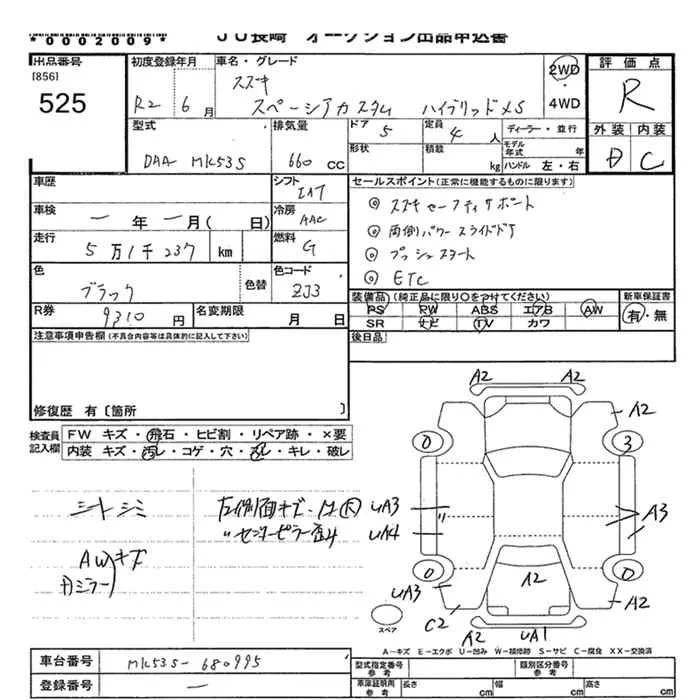 *0002009* JU長崎 オークション出品申込書
出品番号
[856]
525
初度登録年月
R2 6月
車名・グレード
スズキ
スペーシアカスタム ハイブリッドXS
2WD
・
4WD
評価点
R
外装 内装
D C
型式
DAA-MK53S
排気量
660 CC
ドア 5
形状
定員 4 人
積載 kg
ディーラー・並行
モデル年式 年
ハンドル 左・右
車歴
シフト
IAT
車検
一年一月( 日)
冷房
AAC
走行
5万1千237 km
燃料
G
色
ブラック
色替
色コード
ZJ3
R券
9310 円
名変期限
月 日
セールスポイント(正常に機能するものに限ります)
◎ スズキセーフティサポート
◎ 両側パワースライドドア
◎ プッシュスタート
◎ ETC
装備品 (純正品に限り○をつけてください)
PS PW ABS エアB AW
SR ナビ TV カワ
新車保証書
有・無
後日品
注意事項申告欄(不具合内容等は具体的に記入して下さい)
修復歴 有〔箇所 〕
検査員記入欄
FW キズ・飛石・ヒビ割・リペア跡・×要
内装 キズ・汚レ・コゲ・穴・スレ・キレ・破レ
シートシミ
AWキズ
Dミラー
左側面キズ・凹大
〃センターピラー歪み
A2 A2
A2
0 3
UA3
UA4
A3
0 0
UA3
A2
A2
C2
A2 UA1
スペア
A－キズ E－エクボ U－凹み W－補修跡 S－サビ C－腐食 XX－交換済
車台番号
MK53S-680995
登録番号
一
型式指定番号
参考
類別区分番号
参考
車庫証明用
参考
長さ cm
幅 cm
高さ cm